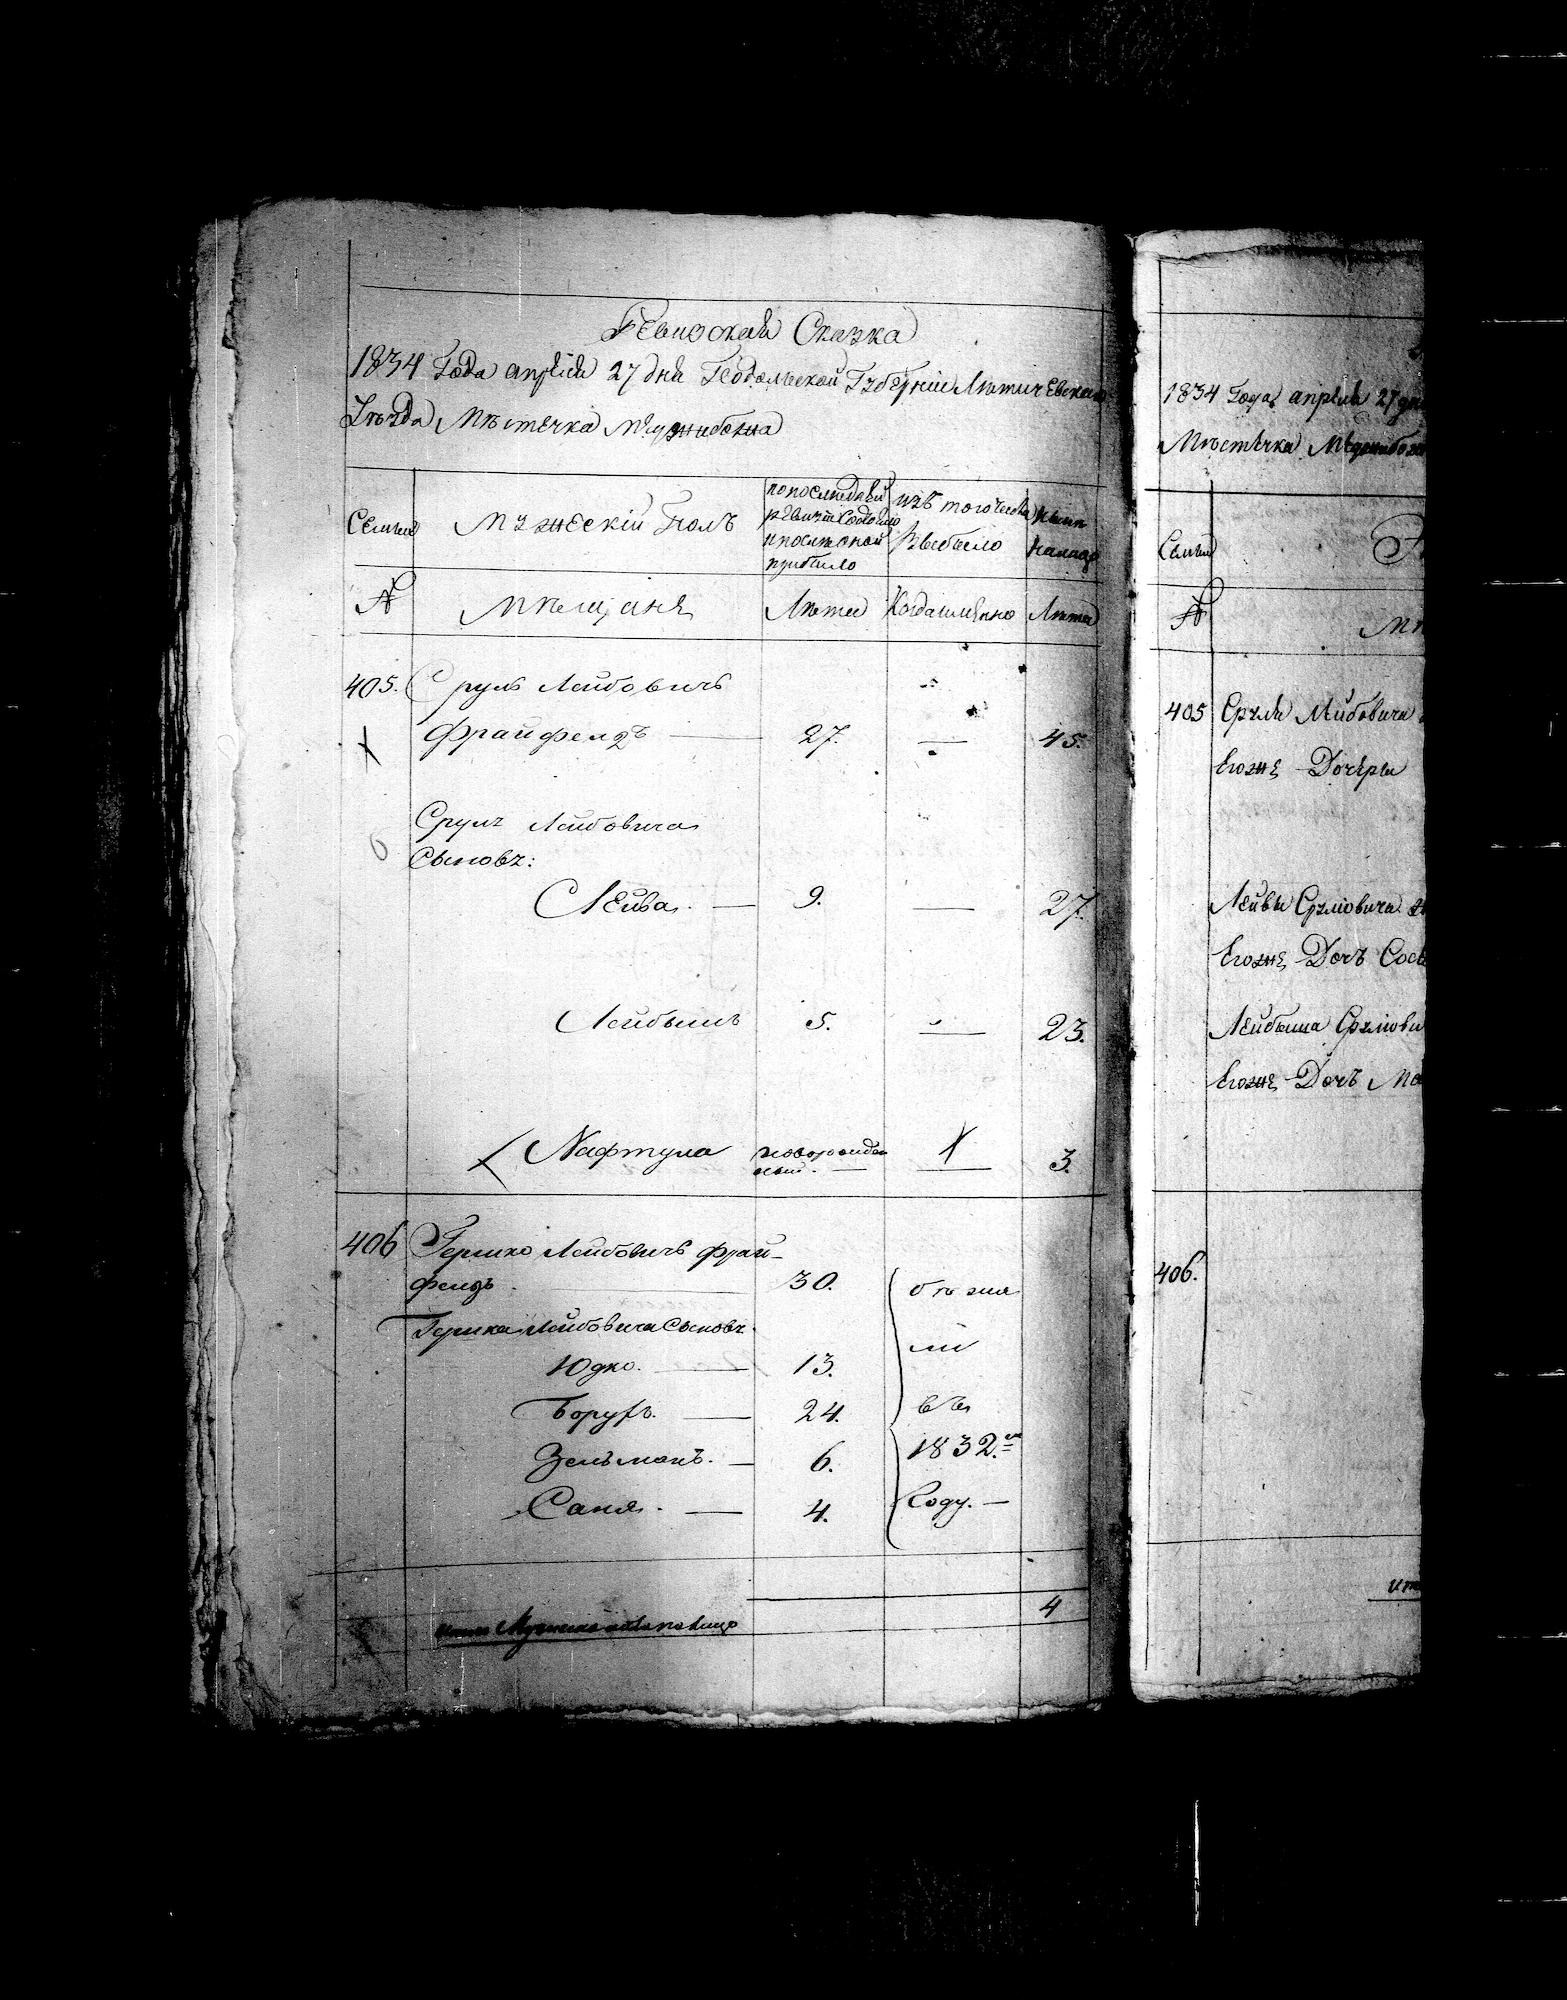 Ревизская Сказка
1834 Года апреля 27 дня Подольской Губерніи Летичевскаго
Уѣзда Мѣстечка Меджибожа
Семьи
Мужескій Полъ
по последней
ревизіи состояло
и после оной
прибыло
изъ того числа
Выбыло
ныне
на лицо
№
Мѣщане
Лѣта
Когда именно
Лѣта
405. Сруль Лейбовичъ
Фрайфелдъ 27. — 45.
Сруля Лейбовича
Сыновъ:
Лейва. — 9. — 27.
Лейбышъ 5. — 23.
Нафтула новорожден
ный. — — 3.
406 Гершко Лейбовичъ Фрай-
фелдъ. 30.
Гершка Лейбовича Сыновъ.
Юдко. — 13.
Борухъ. — 24.
Зельманъ. — 6.
Саня. — 4.
въ
1832.м
Году. —
4
1834 Года апреля 27 дня
Мѣстечка Меджибожа
Семьи
№
405 Сруля Лейбовича
Егоже Дочери
Лейвы Срулiовича
Егоже Дочъ
Лейбыша
Егоже Дочъ
406.